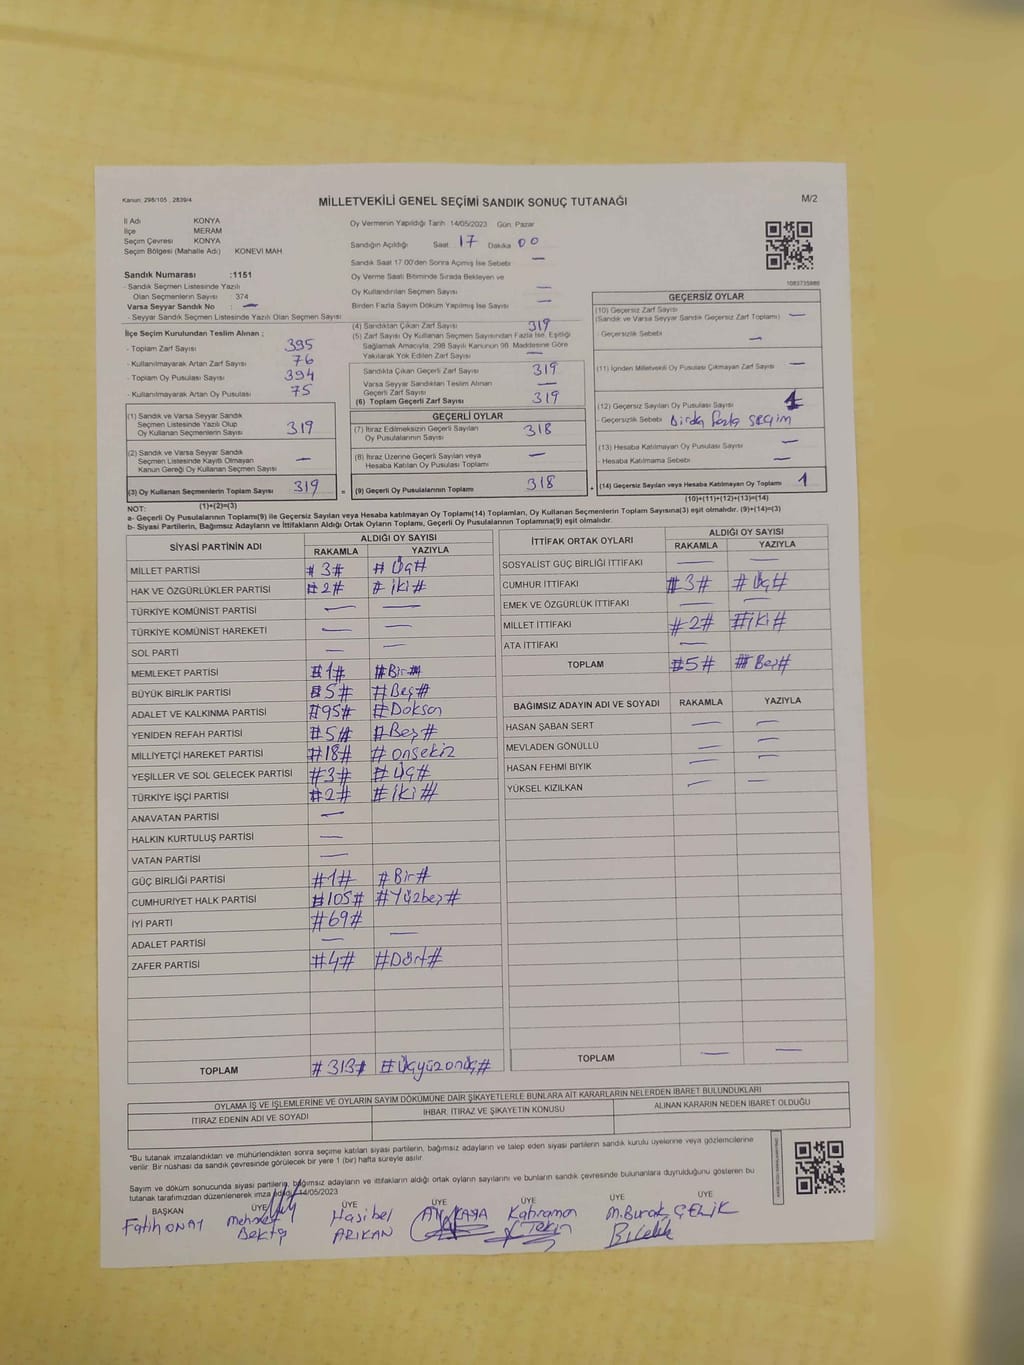 Kanun: 298/105 , 2839/4
MİLLETVEKİLİ GENEL SEÇİMİ SANDIK SONUÇ TUTANAĞI
M/2
İl Adı KONYA
İlçe MERAM
Seçim Çevresi KONYA
Seçim Bölgesi (Mahalle Adı) KONEVİ MAH
Sandık Numarası :1151
- Sandık Seçmen Listesinde Yazılı
Olan Seçmenlerin Sayısı 374
Varsa Seyyar Sandık No : —
- Seyyar Sandık Seçmen Listesinde Yazılı Olan Seçmen Sayısı
İlçe Seçim Kurulundan Teslim Alınan ;
- Toplam Zarf Sayısı 395
- Kullanılmayarak Artan Zarf Sayısı 76
- Toplam Oy Pusulası Sayısı 394
- Kullanılmayarak Artan Oy Pusulası 75
(1) Sandık ve Varsa Seyyar Sandık
Seçmen Listesinde Yazılı Olup
Oy Kullanan Seçmenlerin Sayısı 319
(2) Sandık ve Varsa Seyyar Sandık
Seçmen Listesinde Kayıtlı Olmayan
Kanun Gereği Oy Kullanan Seçmen Sayısı —
(3) Oy Kullanan Seçmenlerin Toplam Sayısı 319
(1)+(2)=(3)
Oy Vermenin Yapıldığı Tarih 14/05/2023 Gün: Pazar
Sandığın Açıldığı Saat 17 Dakika 00
Sandık Saat 17:00'den Sonra Açılmış İse Sebebi —
Oy Verme Saati Bitiminde Sırada Bekleyen ve
Oy Kullandırılan Seçmen Sayısı —
Birden Fazla Sayım Döküm Yapılmış İse Sayısı —
(4) Sandıktan Çıkan Zarf Sayısı 319
(5) Zarf Sayısı Oy Kullanan Seçmen Sayısından Fazla İse, Eşitliği
Sağlamak Amacıyla, 298 Sayılı Kanunun 98. Maddesine Göre
Yakılarak Yok Edilen Zarf Sayısı —
Sandıkta Çıkan Geçerli Zarf Sayısı 319
Varsa Seyyar Sandıktan Teslim Alınan
Geçerli Zarf Sayısı —
(6) Toplam Geçerli Zarf Sayısı 319
GEÇERLİ OYLAR
(7) İtiraz Edilmeksizin Geçerli Sayılan
Oy Pusulalarının Sayısı 318
(8) İtiraz Üzerine Geçerli Sayılan veya
Hesaba Katılan Oy Pusulası Toplamı —
= (9) Geçerli Oy Pusulalarının Toplamı 318
1083735880
GEÇERSİZ OYLAR
(10) Geçersiz Zarf Sayısı
(Sandık ve Varsa Seyyar Sandık Geçersiz Zarf Toplamı) —
- Geçersizlik Sebebi —
(11) İçinden Milletvekili Oy Pusulası Çıkmayan Zarf Sayısı —
(12) Geçersiz Sayılan Oy Pusulası Sayısı 1
- Geçersizlik Sebebi Birden fazla seçim
(13) Hesaba Katılmayan Oy Pusulası Sayısı —
- Hesaba Katılmama Sebebi —
+ (14) Geçersiz Sayılan veya Hesaba Katılmayan Oy Toplamı 1
(10)+(11)+(12)+(13)=(14)
NOT:
a- Geçerli Oy Pusulalarının Toplamı(9) ile Geçersiz Sayılan veya Hesaba katılmayan Oy Toplamı(14) Toplamları, Oy Kullanan Seçmenlerin Toplam Sayısına(3) eşit olmalıdır. (9)+(14)=(3)
b- Siyasi Partilerin, Bağımsız Adayların ve İttifakların Aldığı Ortak Oyların Toplamı, Geçerli Oy Pusulalarının Toplamına(9) eşit olmalıdır.
SİYASİ PARTİNİN ADI ALDIĞI OY SAYISI
RAKAMLA YAZIYLA
MİLLET PARTİSİ #3# #Üç#
HAK VE ÖZGÜRLÜKLER PARTİSİ #2# #iki#
TÜRKİYE KOMÜNİST PARTİSİ — —
TÜRKİYE KOMÜNİST HAREKETİ — —
SOL PARTİ — —
MEMLEKET PARTİSİ #1# #Bir#
BÜYÜK BİRLİK PARTİSİ #5# #Beş#
ADALET VE KALKINMA PARTİSİ #95# #Doksan
YENİDEN REFAH PARTİSİ #5# #Beş#
MİLLİYETÇİ HAREKET PARTİSİ #18# #onsekiz
YEŞİLLER VE SOL GELECEK PARTİSİ #3# #Üç#
TÜRKİYE İŞÇİ PARTİSİ #2# #iki#
ANAVATAN PARTİSİ —
HALKIN KURTULUŞ PARTİSİ —
VATAN PARTİSİ —
GÜÇ BİRLİĞİ PARTİSİ #1# #Bir#
CUMHURİYET HALK PARTİSİ #105# #Yüzbeş#
İYİ PARTİ #69#
ADALET PARTİSİ — —
ZAFER PARTİSİ #4# #Dört#
TOPLAM #313# #Üçyüzonüç#
İTTİFAK ORTAK OYLARI ALDIĞI OY SAYISI
RAKAMLA YAZIYLA
SOSYALİST GÜÇ BİRLİĞİ İTTİFAKI — —
CUMHUR İTTİFAKI #3# #Üç#
EMEK VE ÖZGÜRLÜK İTTİFAKI — —
MİLLET İTTİFAKI #2# #iki#
ATA İTTİFAKI —
TOPLAM #5# #Beş#
BAĞIMSIZ ADAYIN ADI VE SOYADI RAKAMLA YAZIYLA
HASAN ŞABAN SERT — —
MEVLADEN GÖNÜLLÜ — —
HASAN FEHMİ BIYIK — —
YÜKSEL KIZILKAN — —
TOPLAM — —
OYLAMA İŞ VE İŞLEMLERİNE VE OYLARIN SAYIM DÖKÜMÜNE DAİR ŞİKAYETLERLE BUNLARA AİT KARARLARIN NELERDEN İBARET BULUNDUKLARI
İTİRAZ EDENİN ADI VE SOYADI İHBAR, İTİRAZ VE ŞİKAYETİN KONUSU ALINAN KARARIN NEDEN İBARET OLDUĞU
*Bu tutanak imzalandıktan ve mühürlendikten sonra seçime katılan siyasi partilerin, bağımsız adayların ve talep eden siyasi partilerin sandık kurulu üyelerine veya gözlemcilerine
verilir. Bir nüshası da sandık çevresinde görülecek bir yere 1 (bir) hafta süreyle asılır.
Sayım ve döküm sonucunda siyasi partilerin, bağımsız adayların ve ittifakların aldığı ortak oyların sayılarını ve bunların sandık çevresinde bulunanlara duyrulduğunu gösteren bu
tutanak tarafımızdan düzenlenerek imza edildi. 14/05/2023
BAŞKAN ÜYE ÜYE ÜYE ÜYE ÜYE ÜYE
Fatih ONAT Mehmet Hasibel KAYA Kahraman M.Burak ÇELİK
Bektaş ARIKAN Tekin B.Çelik